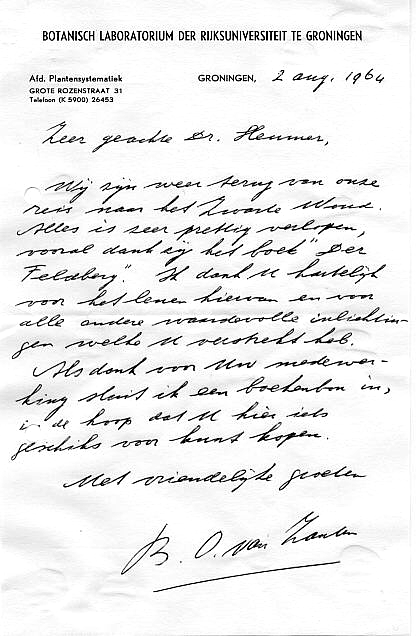 BOTANISCH LABORATORIUM DER RIJKSUNIVERSITEIT TE GRONINGEN
Afd. Plantensystematiek
GROTE ROZENSTRAAT 31
Telefoon (K 5900) 26453
GRONINGEN, 2 aug. 1964
Zeer geachte Dr.
Wij zijn weer terug van onze
reis naar het Zwarte Woud.
Alles is zeer prettig verlopen,
vooral dank zij het boek "Der
Feldberg". Ik dank U hartelijk
voor het lenen hiervan en voor
alle andere waardevolle inlichtin-
gen welke U verstrekt heb.
Als dank voor Uw medewer-
king sluit ik een boekenbon in,
in de hoop dat U hier iets
geschiks voor kunt kopen.
Met vriendelijke groeten
B. O. van Zanten